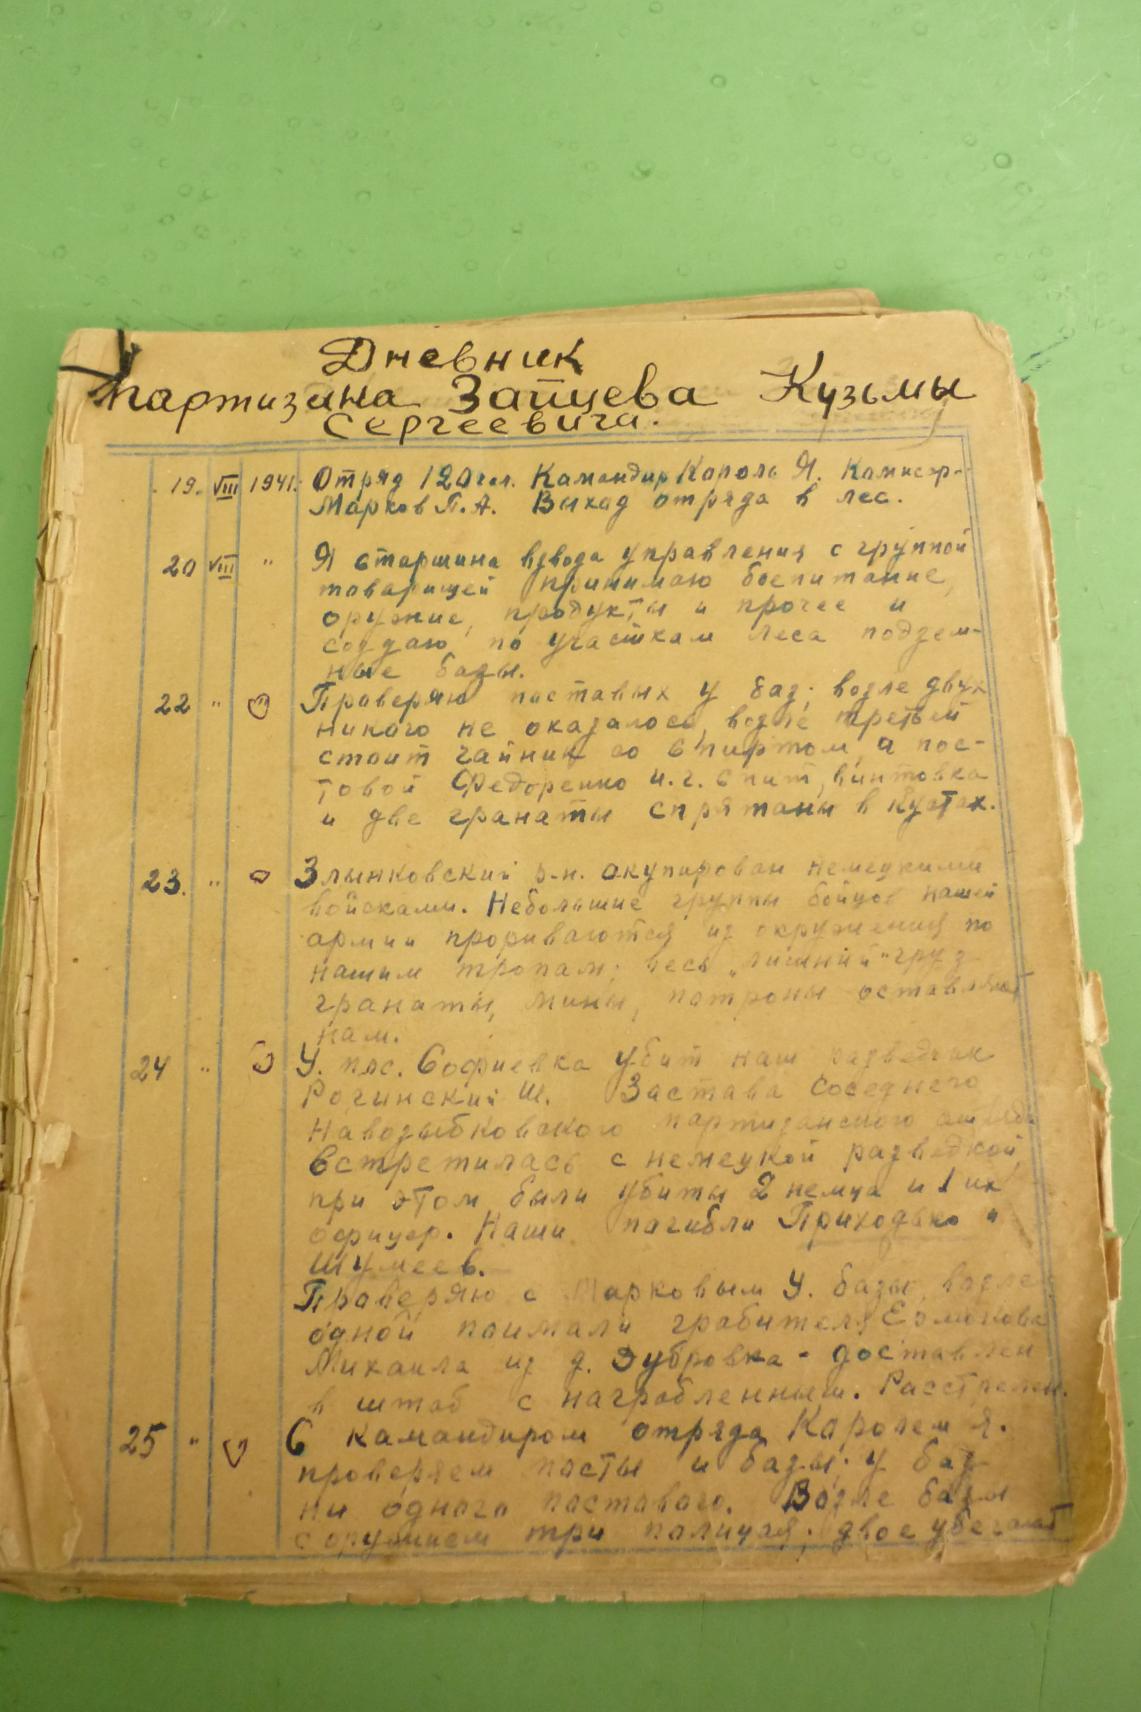 Дневник
партизана Зайцева Кузьмы
Сергеевича.
19. VIII 1941. Отряд 120 чел. Командир Король Я. Комиссар-
Марков П.А. Выход отряда в лес.
20 VIII " Я старшина взвода управления с группой
товарищей принимаю боепитание,
оружие, продукты и прочее и
создаю по участкам леса подзем-
ные базы.
22 " Проверяю постовых у баз; возле двух
никого не оказалось, возле третьей
стоит чайник со спиртом, а пос-
товой Федоренко И.Г. спит, винтовка
и две гранаты спрятаны в кустах.
23. " Злынковский р-н. окупирован немецкими
войсками. Небольшие группы бойцов нашей
армии прориваются из окружения по
нашим тропам; весь „лишний" груз
гранаты, мины, патроны оставляют
нам.
24 " У. пос. Софиевка убит наш разведчик
Рогинский Ш. Застава соседнего
Новозыбковского партизанского отряда
встретилась с немецкой разведкой,
при этом были убиты 2 немца и 1 их
офицер. Наши погибли Приходько и
Шумеев.
Проверяю с Марковым У. базы, возле
одной поймали грабителя Ермакова
Михаила из д. Дубровка - доставлен
в штаб с награбленным. Расстрелян.
25 " С командиром отряда Королем Я.
проверяем посты и базы; у баз
ни одного постового. Возле базы
с оружием три полицая; двое убегают